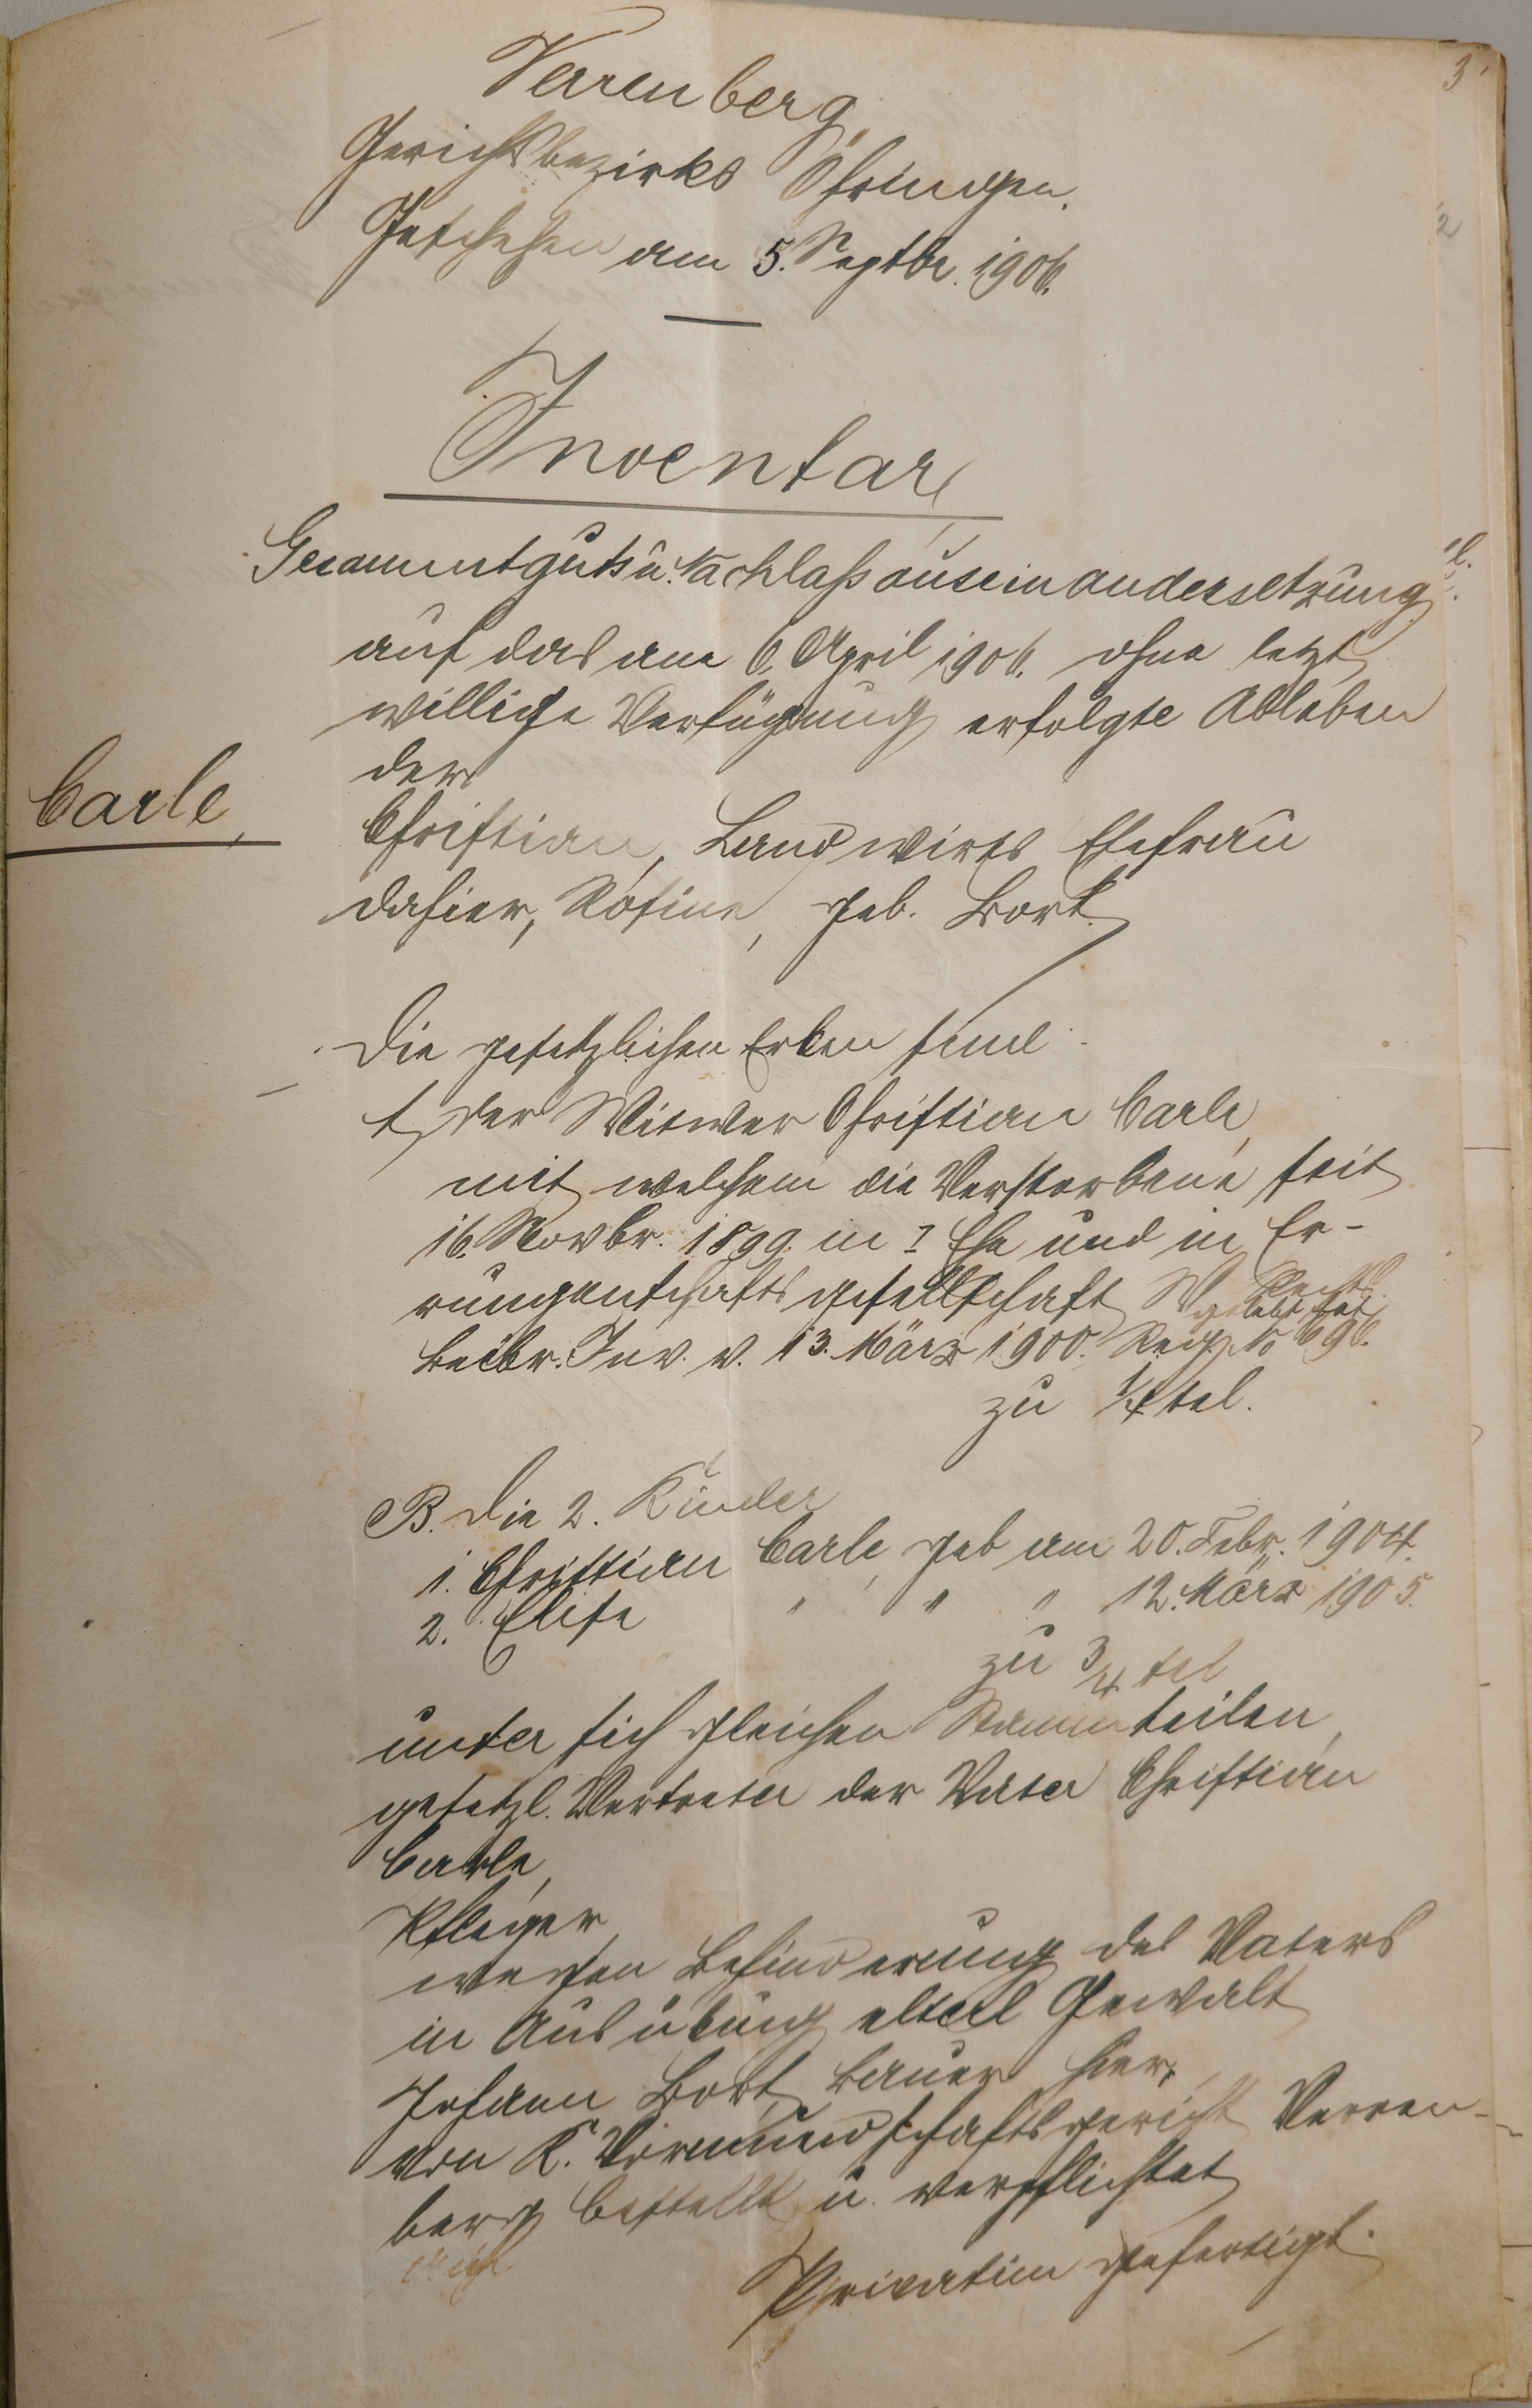 3
2
Verrenberg,
Gerichtsbezirks Öhringen.
Geschehen am 5. Septbr. 1906.
Inventar,
Gesammtguts u. Nachlaßauseinandersetzung
auf das am 6. April 1906. ohne letzt
willige Verfügung erfolgte Ableben
der
Carle,
Christian, Landwirts Ehefrau
dahier, Rosine, geb. Bort.
Die gesetzlichen Erben sind
der Witwer Christian Carle,
mit welchem die Verstorbene seit
16. Novbr. 1899. in I Ehe und in Er-
rungenschaftsgesellschaft W. Rechts.
gelebt hat,
Beibr. Inv. v. 13. März 1900. Reg. No 696.
zu 1/4tel.
B. Die 2. Kinder
1. Christian Carle, geb am 20. Febr. 1904.
2. Elise " " " 12. März 1905.
zu 3/4 tel
unter sich gleichen Stammteilen,
gesetzl. Vertreter der Vater Christian
Carle,
Pfleger,
wegen Behinderung des Vaters
in Ausübung elterl Gewalt
Johann Bort, Bauer hier,
von K. Vormundschaftsgericht Verren-
berg bestellt u. verpflichtet
Privatim gefertigt.